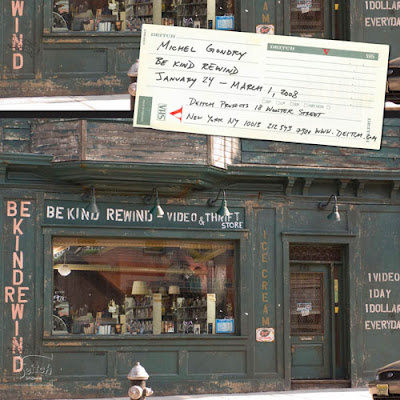 REWIND
1 DOLLAR
EVERYDAY
DEITCH
MICHEL GONDRY
BE KIND REWIND
JANUARY 24 – MARCH 1, 2008
DEITCH PROJECTS 18 WOOSTER STREET
NEW YORK NY 10013 212 343 7300 WWW.DEITCH.COM
VHS
BE KIND REWIND
BE KIND REWIND - VIDEO & THRIFT
STORE
ICE CREAM
1 VIDEO
1 DAY
1 DOLLAR
EVERYDAY